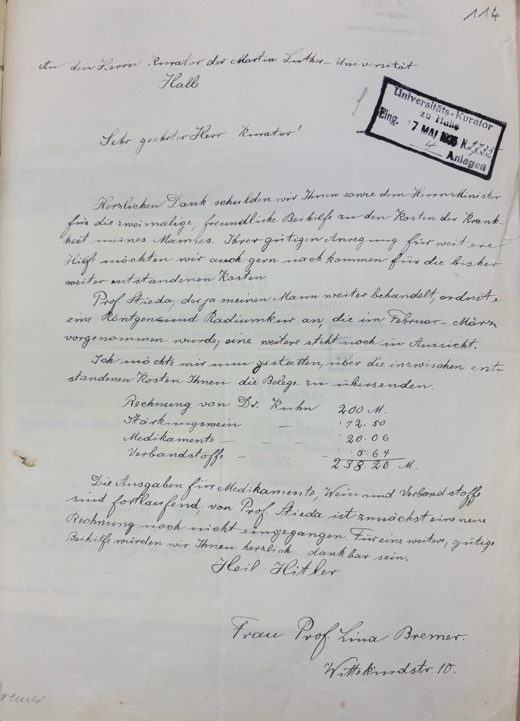 114
An den Herrn Kurator der Martin Luther-Universität
Halle
Universitäts-Kurator
zu Halle
Eing. 7 MAI N 2732
4 Anlagen
Sehr geehrter Herr Kurator!
Herzlichen Dank schulden wir Ihnen sowie dem Herrn Minister
für die zweimalige, freundliche Beihilfe zu den Kosten der Krank-
heit meines Mannes. Ihrer gütigen Anregung für weitere
Hilfe möchten wir auch gern nachkommen für die bisher
weiter entstandenen Kosten.
Prof. Stieda, der ja meinen Mann weiter behandelt, ordnete
eine Röntgen und Radiumkur an, die im Februar-März
vorgenommen wurde, eine weitere steht noch in Aussicht.
Ich möchte mir nun gestatten, über die inzwischen ent-
standenen Kosten Ihnen die Belege zu übersenden.
Rechnung von Dr. Kuhn 200 M.
Stärkungswein - 12.50
Medikamente - - 20.06
Verbandstoffe - 5.64
238.20 M.
Die Ausgaben für Medikamente, Wein und Verbandstoffe
sind fortlaufend, von Prof. Stieda ist zunächst eine neue
Rechnung noch nicht eingegangen. Für eine weitere, gütige
Beihilfe würden wir Ihnen herzlich dankbar sein.
Heil Hitler
Frau Prof. Lina Bremer.
Wittekindstr. 10.
Bremer